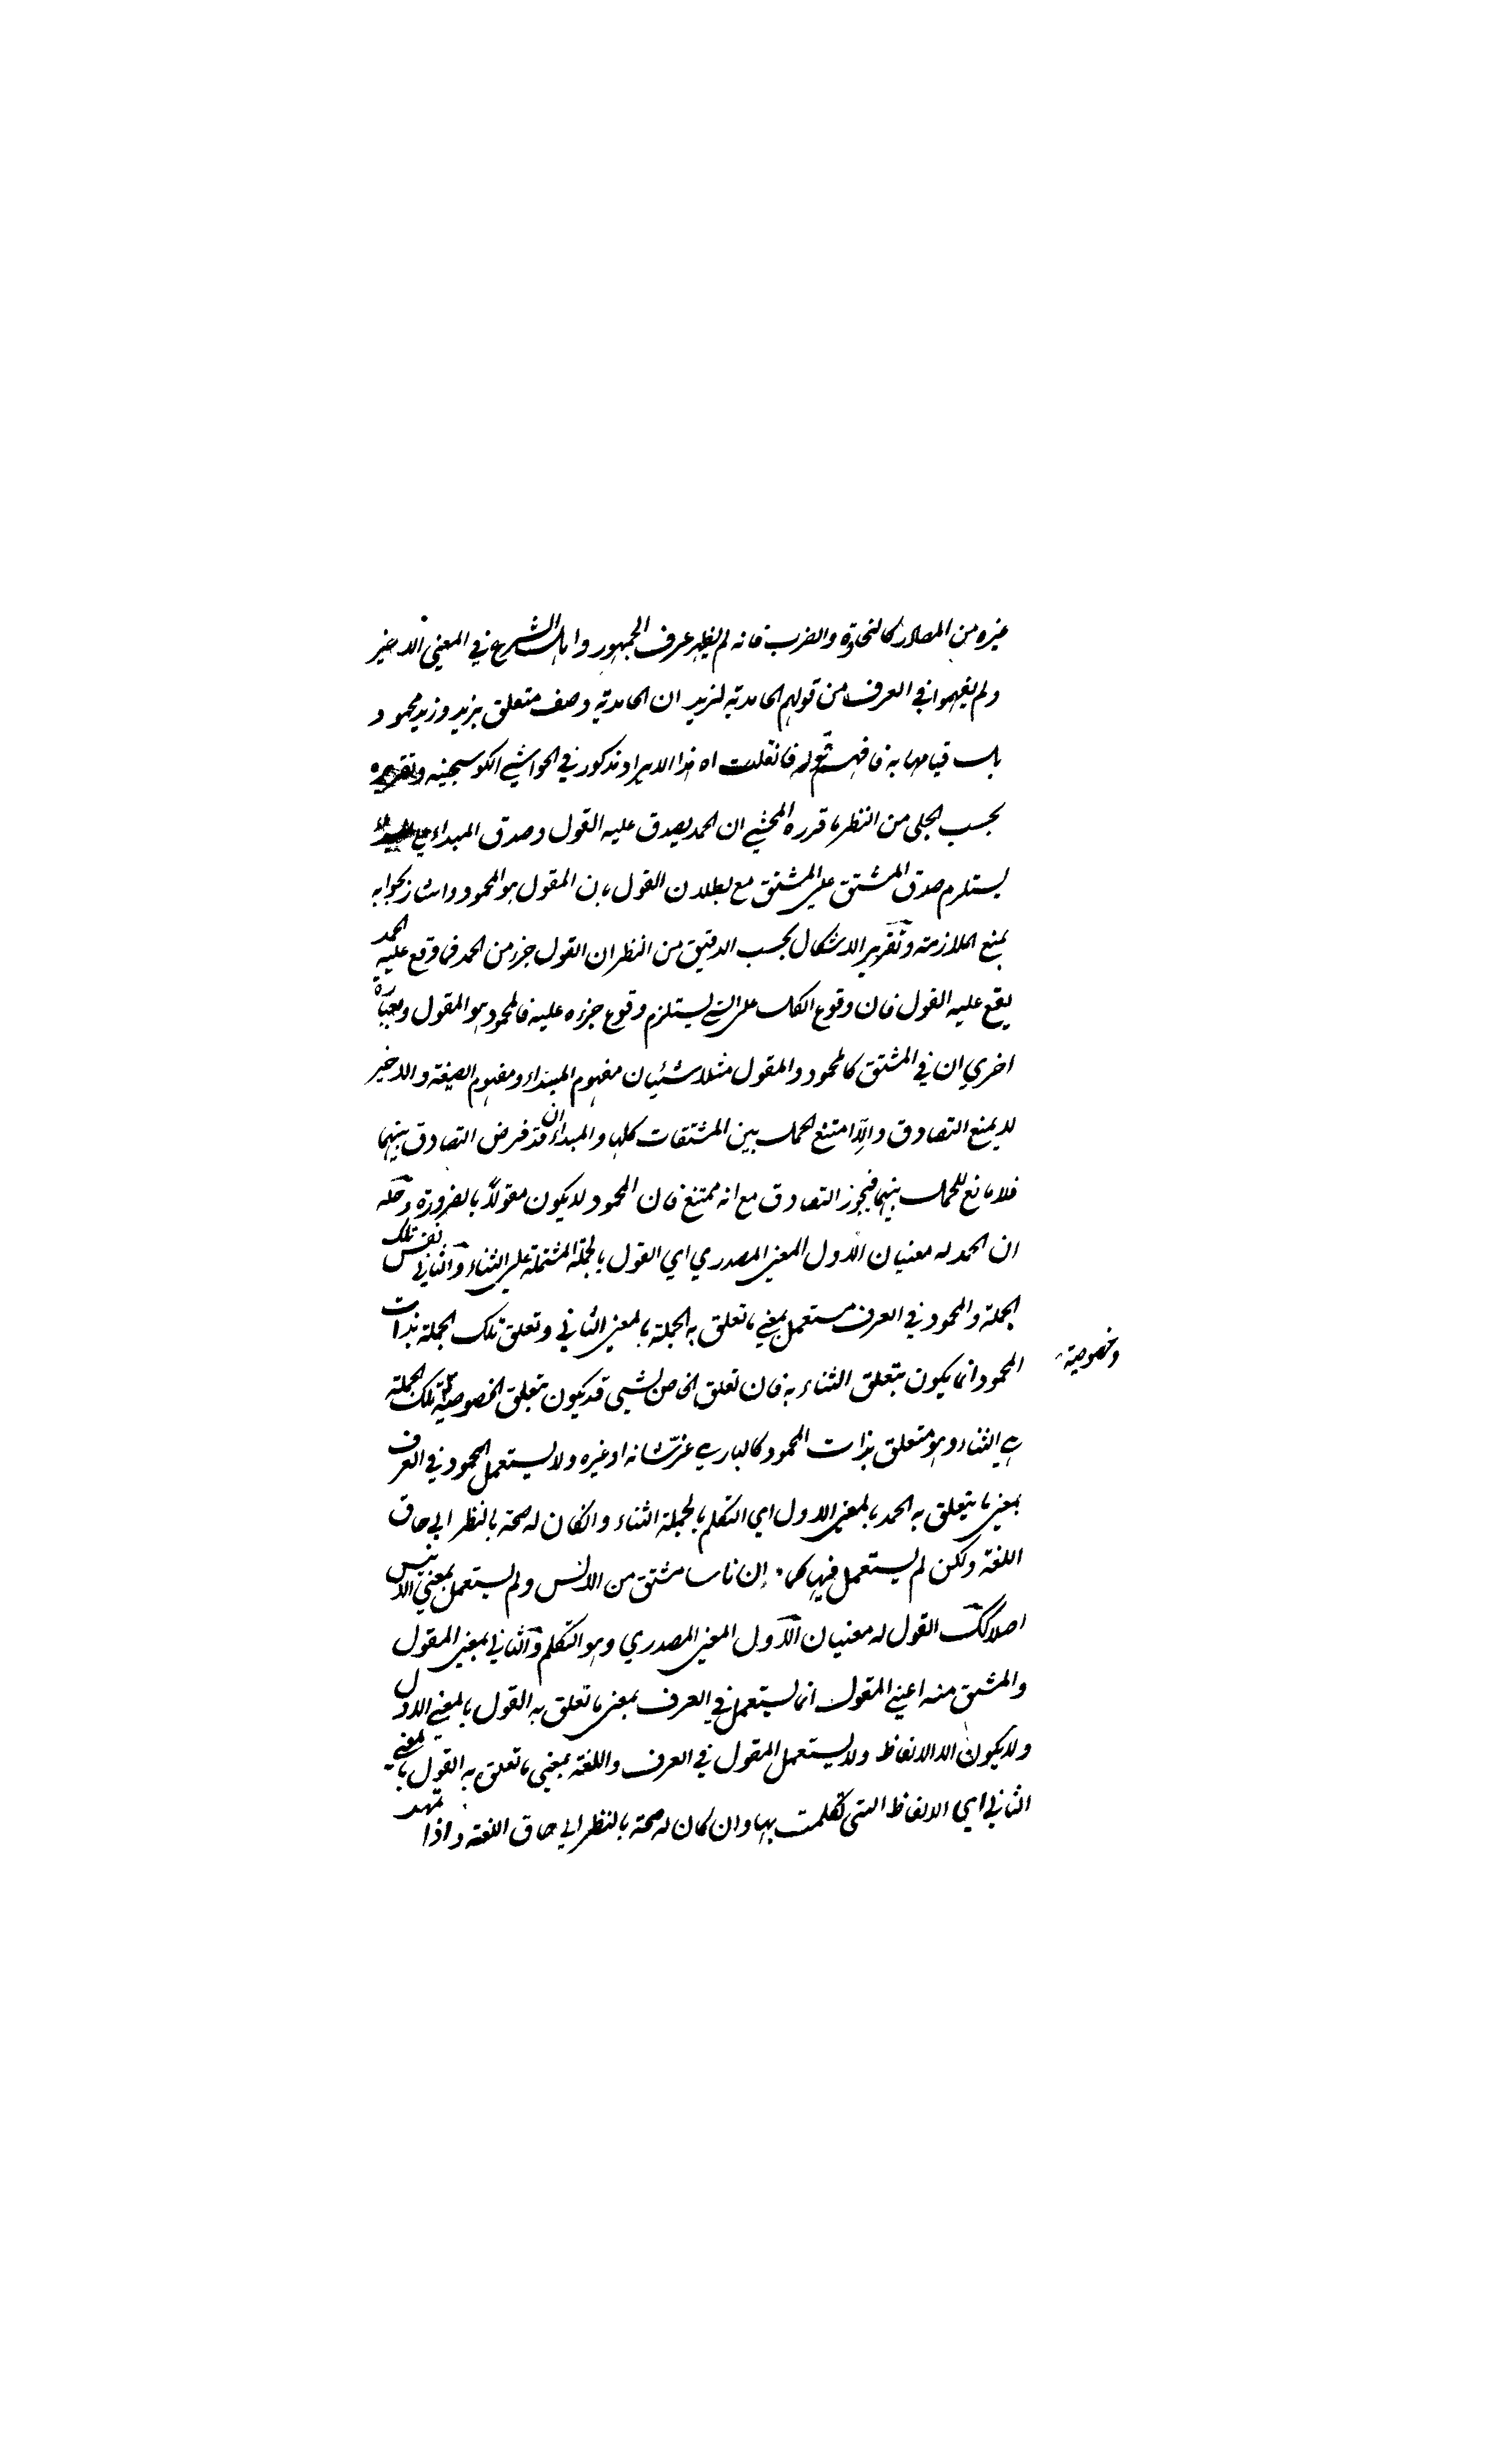 غيره من المصادر كالنحاوة والضرب فانه لم يظهر عرف الجمهور واهل الشرع في المعنى الاخير
ولم يفهموا في العرف من قولهم الحامدية لزيد ان الحامدية وصف متعلق بزيد وزيد محمود
بل قيامها به فافهم قوله فان قلت اه هذا الايراد مذكور في الحواشي الكوسجية وتقريره
بحسب الجلي من النظر ما قرره المحشي ان الحمد يصدق عليه القول وصدق المبداء على المبداء
يستلزم صدق المشتق على المشتق مع بطلان القول بان المقول هو المحمود واشار بجوابه
بمنع الملازمة وتقرير الاشكال بحسب الدقيق من النظر ان القول جزء من الحمد فما وقع عليه الحمد
يقع عليه القول فان وقوع الكل على الشئ يستلزم وقوع جزءه عليه فالمحمود هو المقول وبعبارة
اخرى ان في المشتق كالمحمود والمقول مثلا شيئان مفهوم المبداء ومفهوم الصيغة والاخير
لا يمنع التصادق والا امتنع الحمل بين المشتقات كلها والمبداء ان قد فرض التصادق بينهما
فلا مانع للحمل بينهما فيجوز التصادق مع انه ممتنع فان المحمود لا يكون مقولا بالضرورة وحله
ان الحمد له معنيان الاول المعنى المصدري اي القول بالجملة المشتملة على الثناء والثاني نفس تلك
الجملة والمحمود في العرف مستعمل بمعنى ما تعلق به الجملة بالمعنى الثاني وتعلق تلك الجملة بذات
المحمود انما يكون بتعلق الثناء به فان تعلق الخاص لشئ قد يكون بتعلق الخصوصية تلك الجملة
وخصوصية
هي الثناء وهو متعلق بذات المحمود كالباري عز شانه او غيره ولا يستعمل المحمود في العرف
بمعنى ما يتعلق به الحمد بالمعنى الاول اي التكلم بالجملة الثناء وان كان له صحة بالنظر الى حاق
اللغة ولكن لم يستعمل فيها كما ان ناسا مشتق من الانس ولم يستعمل بمعنى الانيس
اصلا كك القول له معنيان الاول المعنى المصدري وهو التكلم والثاني بمعنى المقول
والمشتق منه اعني المقول انما يستعمل في العرف بمعنى ما تعلق به القول بالمعنى الاول
ولا يكون الا الالفاظ ولا يستعمل المقول في العرف واللغة بمعنى ما تعلق به القول بالمعنى
الثاني اي الالفاظ التي تكلمت بها وان كان له صحة بالنظر الى حاق اللغة واذا تمهد